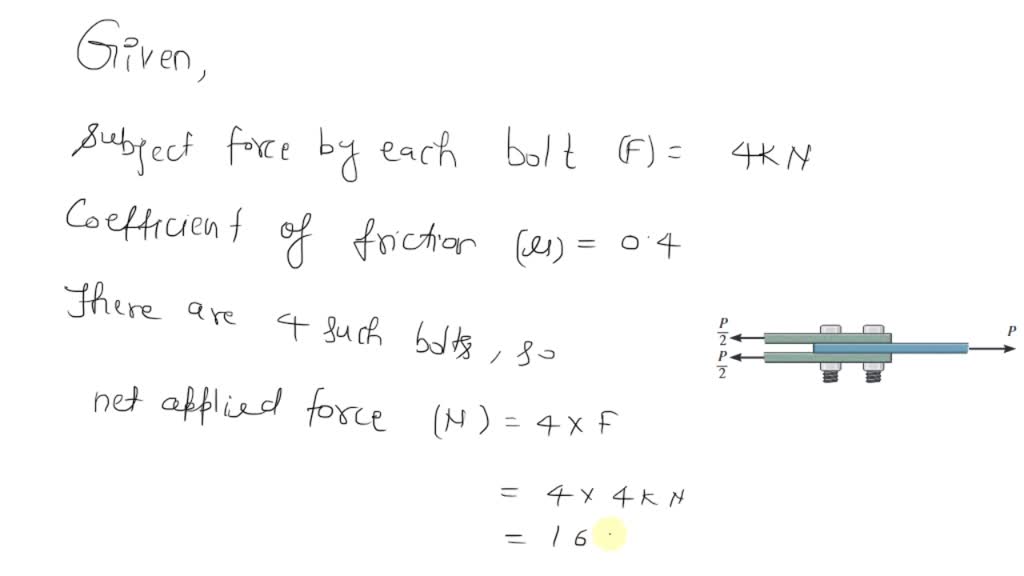 Given,
Subject force by each bolt (F) = 4KN
Coefficient of friction (μ) = 0.4
There are 4 such bolts, so
net applied force (N) = 4 x F
= 4 x 4KN
= 16
P
2
P
2
P